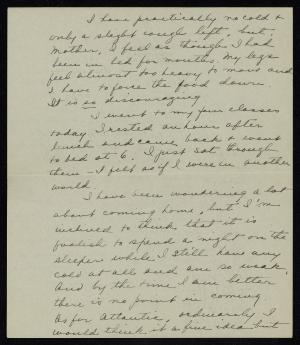 I have practically no cold &
only a slight cough left, but
Mother, I feel as though I had
been in bed for months. My legs
feel almost too heavy to move and
I have to force the food down.
It is so discouraging
I went to my four classes
today I rested an hour after
lunch and came back & went
to bed at 6. I just sat through
them - I felt as if I were in another
world.
I have been wondering a lot
about coming home, but I'm
inclined to think that it is
foolish to spend a night on the
sleeper while I still have any
cold at all and am so weak.
And by the time I am better
there is no point in coming
As for Atlantic, ordinarily I
would think it a fine idea but